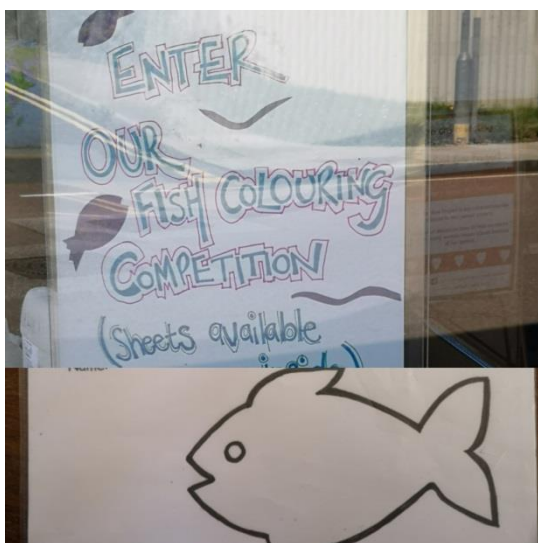 ENTER
OUR
FISH COLOURING
COMPETITION
(Sheets available